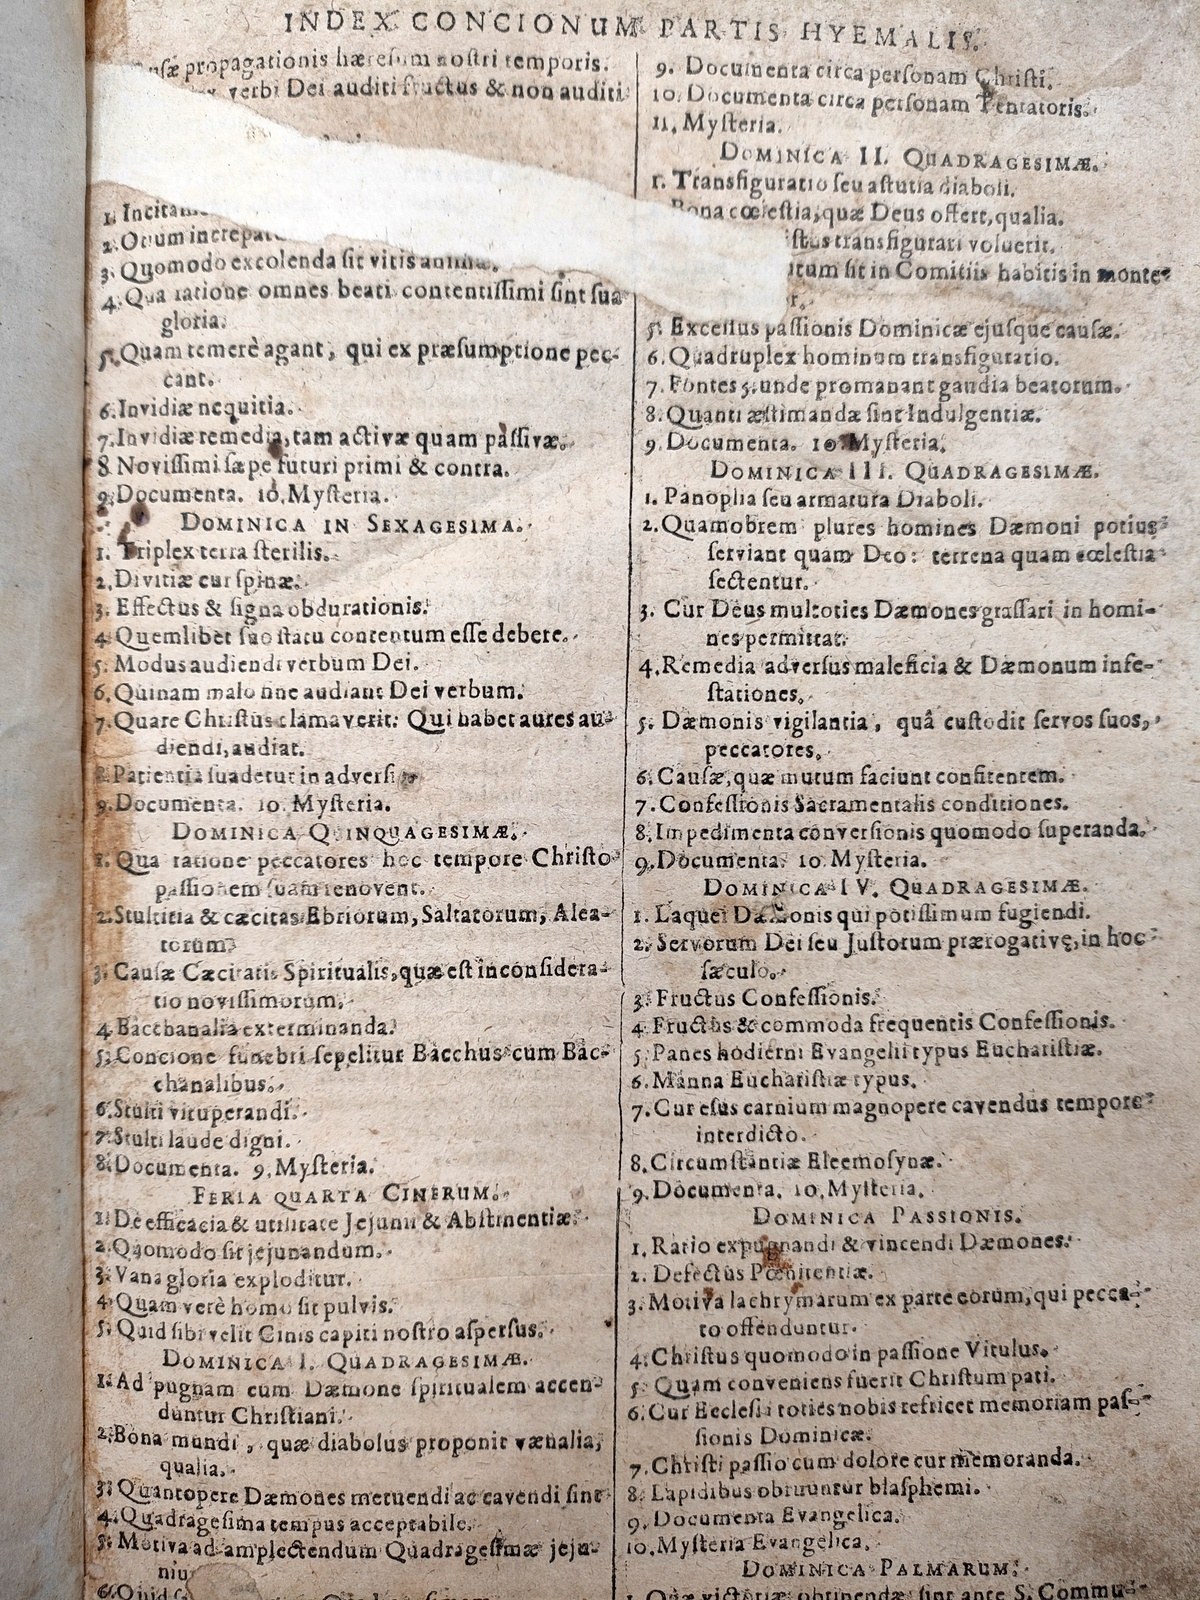 INDEX CONCIONUM PARTIS HYEMALIS.
propagationis hæresum nostri temporis.
verbi Dei auditi fructus & non auditi
1. Incitam
2. Otium increpat
3. Quomodo excolenda sit vitis animæ.
4. Qua ratione omnes beati contentissimi sint sua
gloria.
5. Quam temerè agant, qui ex præsumptione pec-
cant.
6. Invidiæ nequitia.
7. Invidiæ remedia, tam activæ quam passivæ.
8 Novissimi sæpe futuri primi & contra.
9. Documenta. 10. Mysteria.
DOMINICA IN SEXAGESIMA.
1. Triplex terra sterilis.
2. Divitiæ cur spinæ.
3. Effectus & signa obdurationis.
4. Quemlibet suo statu contentum esse debere.
5. Modus audiendi verbum Dei.
6. Quinam malo fine audiant Dei verbum.
7. Quare Christus clamaverit: Qui habet aures au-
diendi, audiat.
8. Patientia suadetur in adversi
9. Documenta. 10. Mysteria.
DOMINICA QUINQUAGESIMÆ.
1. Qua ratione peccatores hoc tempore Christo
passionem suam renovent.
2. Stultitia & cæcitas Ebriorum, Saltatorum, Alea-
torum
3. Causæ Cæcitatis Spiritualis, quæ est inconsidera-
tio novissimorum.
4 Bacchanalia exterminanda.
5. Concione funebri sepelitur Bacchus cum Bac-
chanalibus.
6. Stulti vituperandi.
7. Stulti laude digni.
8. Documenta. 9. Mysteria.
FERIA QUARTA CINERUM.
1. De efficacia & utilitate Jejunii & Abstinentiæ.
2. Quomodo sit jejunandum.
3. Vana gloria exploditur.
4. Quam verè homo sit pulvis.
5. Quid sibi velit Cinis capiti nostro aspersus.
DOMINICA I. QUADRAGESIMÆ.
1. Ad pugnam cum Dæmone spiritualem accen-
duntur Christiani.
2. Bona mundi, quæ diabolus proponit vænalia,
qualia.
3. Quantopere Dæmones metuendi ac cavendi sint
4. Quadragesima tempus acceptabile.
5. Motiva ad amplectendum Quadragesimæ jeju-
niu
6. Quid
9. Documenta circa personam Christi.
10. Documenta circa personam Tentatoris.
11. Mysteria.
DOMINICA II. QUADRAGESIMÆ.
1. Transfiguratio seu astutia diaboli.
Bona cœlestia, quæ Deus offert, qualia.
istus transfigurari voluerit.
utum sit in Comitiis habitis in monte
r.
5. Excessus passionis Dominicæ ejusque causæ.
6. Quadruplex hominum transfiguratio.
7. Fontes 5. unde promanant gaudia beatorum.
8. Quanti æstimandæ sint Indulgentiæ.
9. Documenta. 10. Mysteria.
DOMINICA III. QUADRAGESIMÆ.
1. Panoplia seu armatura Diaboli.
2. Quamobrem plures homines Dæmoni potius
serviant quam Deo: terrena quam cœlestia
sectentur.
3. Cur Deus multoties Dæmones grassari in homi-
nes permittat.
4. Remedia adversus maleficia & Dæmonum infe-
stationes.
5. Dæmonis vigilantia, quâ custodit servos suos,
peccatores.
6. Causæ, quæ mutum faciunt confitentem.
7. Confessionis Sacramentalis conditiones.
8. Impedimenta conversionis quomodo superanda.
9. Documenta. 10 Mysteria.
DOMINICA IV. QUADRAGESIMÆ.
1. Laquei Dæmonis qui potissimum fugiendi.
2. Servorum Dei seu Justorum prærogativę, in hoc
sæculo.
3. Fructus Confessionis.
4 Fructus & commoda frequentis Confessionis.
5. Panes hodierni Evangelii typus Eucharistiæ.
6. Manna Eucharistiæ typus.
7. Cur esus carnium magnopere cavendus tempore
interdicto.
8. Circumstantiæ Eleemosynæ.
9. Documenta. 10. Mysteria.
DOMINICA PASSIONIS.
1. Ratio expugnandi & vincendi Dæmones.
2. Defectus Pœnitentiæ.
3. Motiva lachrymarum ex parte eorum, qui pecca-
to offenduntur.
4. Christus quomodo in passione Vitulus.
5. Quam conveniens fuerit Christum pati.
6. Cur Ecclesia toties nobis refricet memoriam pas-
sionis Dominicæ.
7. Christi passio cum dolore cur memoranda.
8. Lapidibus obruuntur blasphemi.
9. Documenta Evangelica.
10. Mysteria Evangelica.
DOMINICA PALMARUM.
1. Quæ victoriæ obtinendæ sint ante S. Commu-